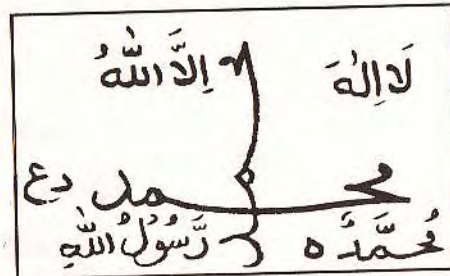 لَا اِلٰهَ اِلَّا اللّٰهُ
محمد دع
مُحَمَّدُه رَّسُوْلُ اللّٰهِ